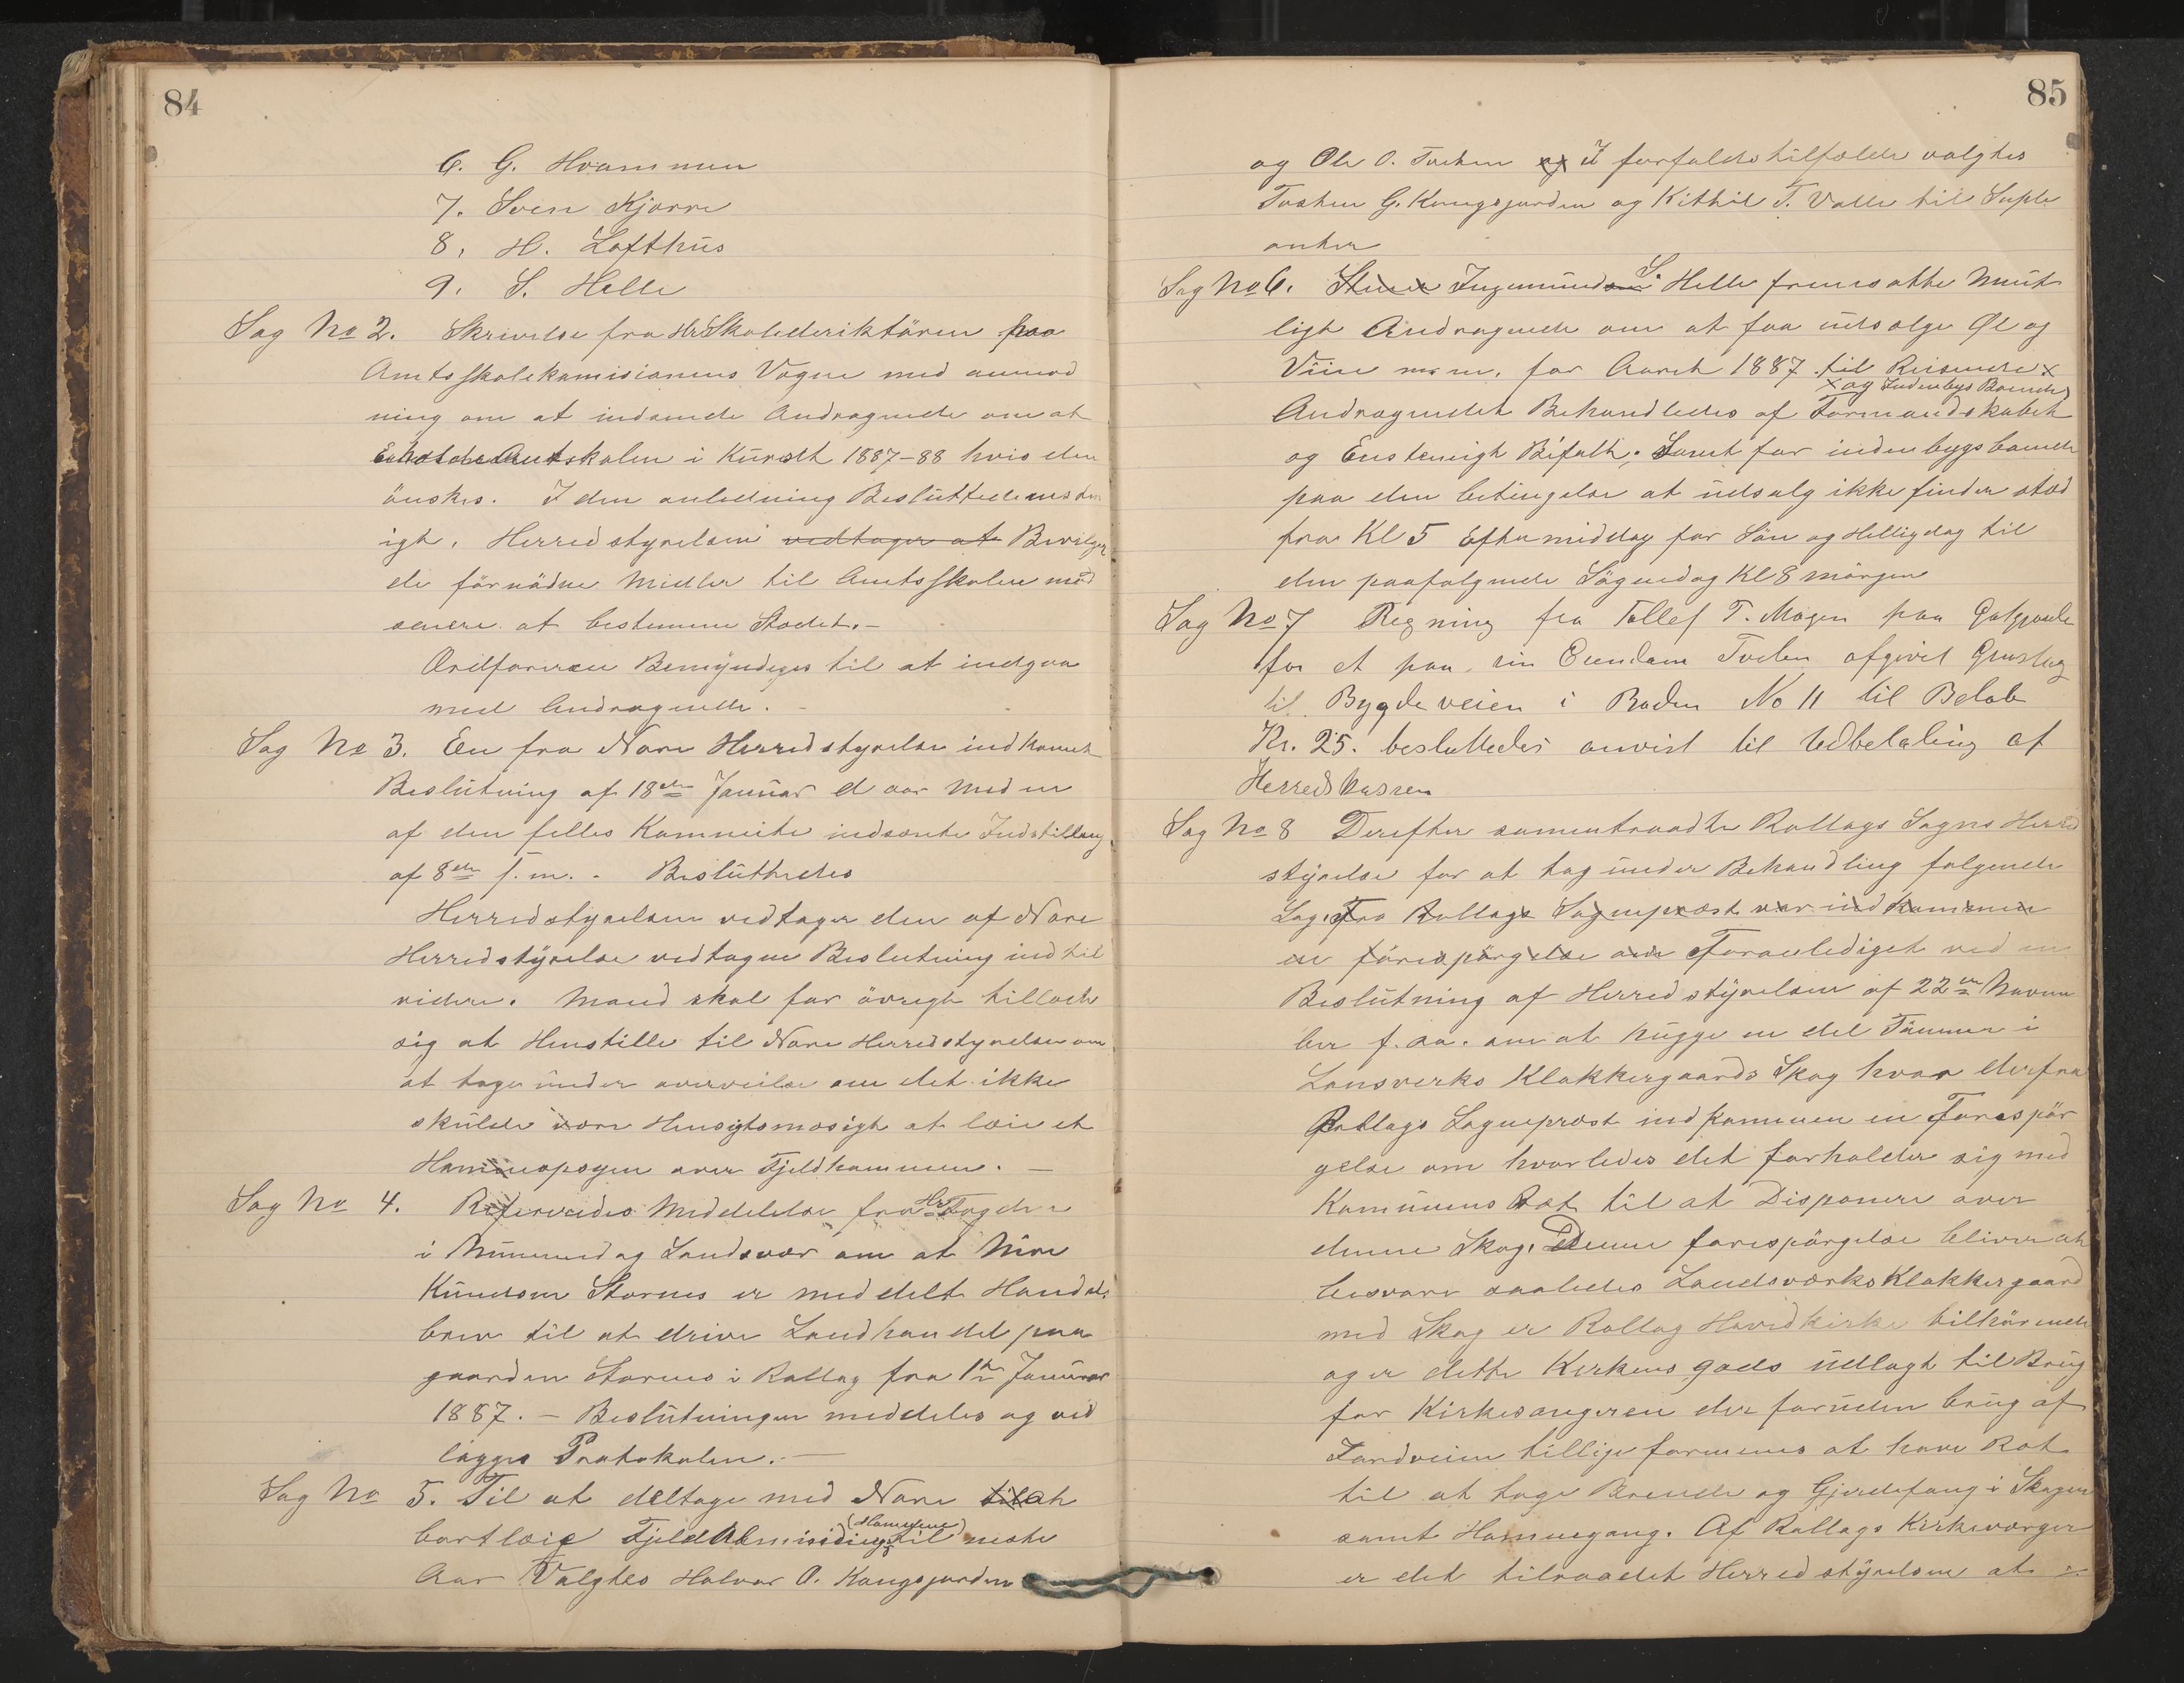 84
6. G. Hvammen
7. Sven Kjorre
8. H. Lofthus
9. S. Helle
Sag No 2. Skrivelse fra Hr. Skolederiktören paa
Amtsskolekomisionens Vegne med anmod
ning om at indsende Andragende om at
Amtskolen i Kurset 1887-88 hvis den
önskes. I den anledning Besluttedes
igt. Herredstyrelsen vedtager at Bevilger
de förnödne Midler til Amtsskolen mod
senere at bestemme Stedet.-
Ordføreren Bemyndiges til at indgaa
med Andragende. -
Sag No 3. En fra Nore Herredstyrelse indkomet
Beslutning af 18de Januar d aar med en
af den felles Kommite indsente Indstilling
af 8de s.m. - Besluttedes
Herredstyrelsen vedtager den af Nore
Herredstyrelse vedtagne Beslutning indtil
videre. Mand skal for övrigt tillade
sig at Henstille til Nore Herredstyrelse om
at tage under overveielse om det ikke
skulde være Hensigtsmæsigt at leie et
Havneopsyn over Fjeldhavnene. -
Sag No 4. Refereredes Meddelelse fra Hr. Fogden
i Nummedag Landsvær om at Nire
Knudsen Stærnes er meddelt Handels
brev til at drive Landhandel paa
gaarden Stærnes i Rollag fra 1te Januar
1887. - Beslutningen meddeles og ved
lägges Protokolen. -
Sag No 5. Til at deltage med Nore til at
(Havnene)
bortleie Fjeld til neste
Aar Valgtes Halvor O. Kongsjorden
85
og Ole O. Tveten og I forfaldstilfælde valgtes
Tosten G. Kongsjorden og Kittil T. Valle til Suple
anter
Sag No 6. Steen Ingemund S. Helle fremsatte Munt
ligt Andragende om at faa udsælge Øl og
Viin m. m. for Aaret 1887 til Reisende x
x og Indenbys Boende
Andragendet Behandledes af Formandskabet
og Enstemigt Bifalt; Samt for indenbygs boende
paa den betingelse at udsalg ikke finder sted
fra Kl 5 Eftermiddag för Sön og Helligdag til
den paafølgende Sögnedag Kl 8 morgen
Sag No 7 Regning fra Tollef T. Mogen paa Godtgjørelse
for et paa sin Eiendom Tveten afgivet Grustag
til Bygdeveien i Roden No 11 til Beløb
Kr. 25. besluttedes anvist til Udbetaling af
Herredskassen
Sag No 8 Derefter samentraadte Rollags Sogns Herred
styrelse for at tag under Behandling følgende
Sag. Fra Rollags Sognepræst var indkommen
en förespörgelse om Foranlediget ved en
Beslutning af Herredstyrelsen af 22de Novem
ber f. aa. om at hugge en del Tömmer i
Lansverks Klokkergaards Skog hvor derfra
Rollags Sognepræst indkommen en Forespör
gelse om hvorledes det forholder sig med
Komunens Ret til at Disponere over
denne Skog. Denne forespörgelse bliver at
besvare saaledes Landsværks Klokkergaard
med Skog er Rollag Hovedkirke tilhörende
og er dette Kirkens gods udlagt til Brug
for Kirkesangeren der foruden brug af
Jordveien tillige formenes at have Ret
til at tage Brende og Gjerdefang i Skogen
samt Havnegang. Af Rollags Kirkeværger
er det tilraadet Herredstyrelsen at